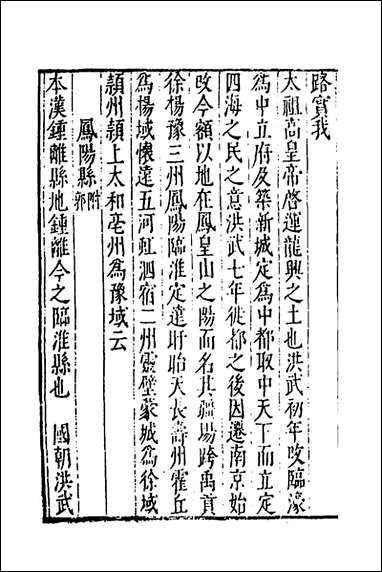 路實我
太祖高皇帝啓運龍興之土也洪武初年改臨濠
爲中立府及築新城定爲中都取中天下而立定
四海之民之意洪武七年徙都之後因遷南京始
改今額以地在鳳皇山之陽而名其疆場跨禹貢
徐楊豫三州鳳陽臨淮定遠盱眙天長壽州霍丘
爲楊域懷遠五河虹泗宿二州靈璧蒙城爲徐域
潁州潁上太和亳州爲豫域云
鳳陽縣附郭
本漢鍾離縣地鍾離今之臨淮縣也 國朝洪武